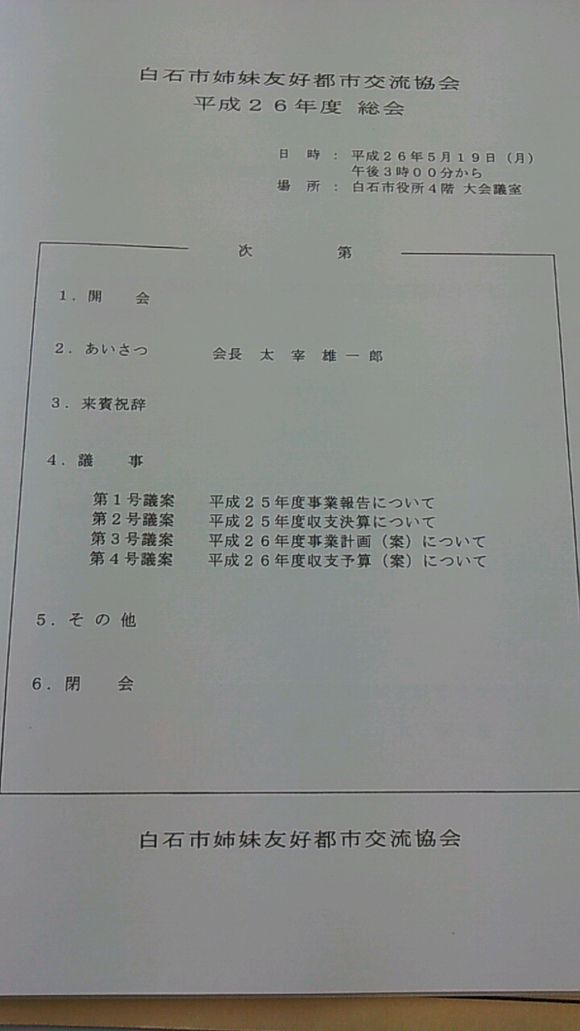 白石市姉妹友好都市交流協会
平成２６年度 総会
日 時 ： 平成２６年５月１９日（月）
午後３時００分から
場 所 ： 白石市役所４階 大会議室
次 第
１．開 会
２．あいさつ 会長 太 宰 雄 一 郎
３．来賓祝辞
４．議 事
第１号議案 平成２５年度事業報告について
第２号議案 平成２５年度収支決算について
第３号議案 平成２６年度事業計画（案）について
第４号議案 平成２６年度収支予算（案）について
５．そ の 他
６．閉 会
白石市姉妹友好都市交流協会